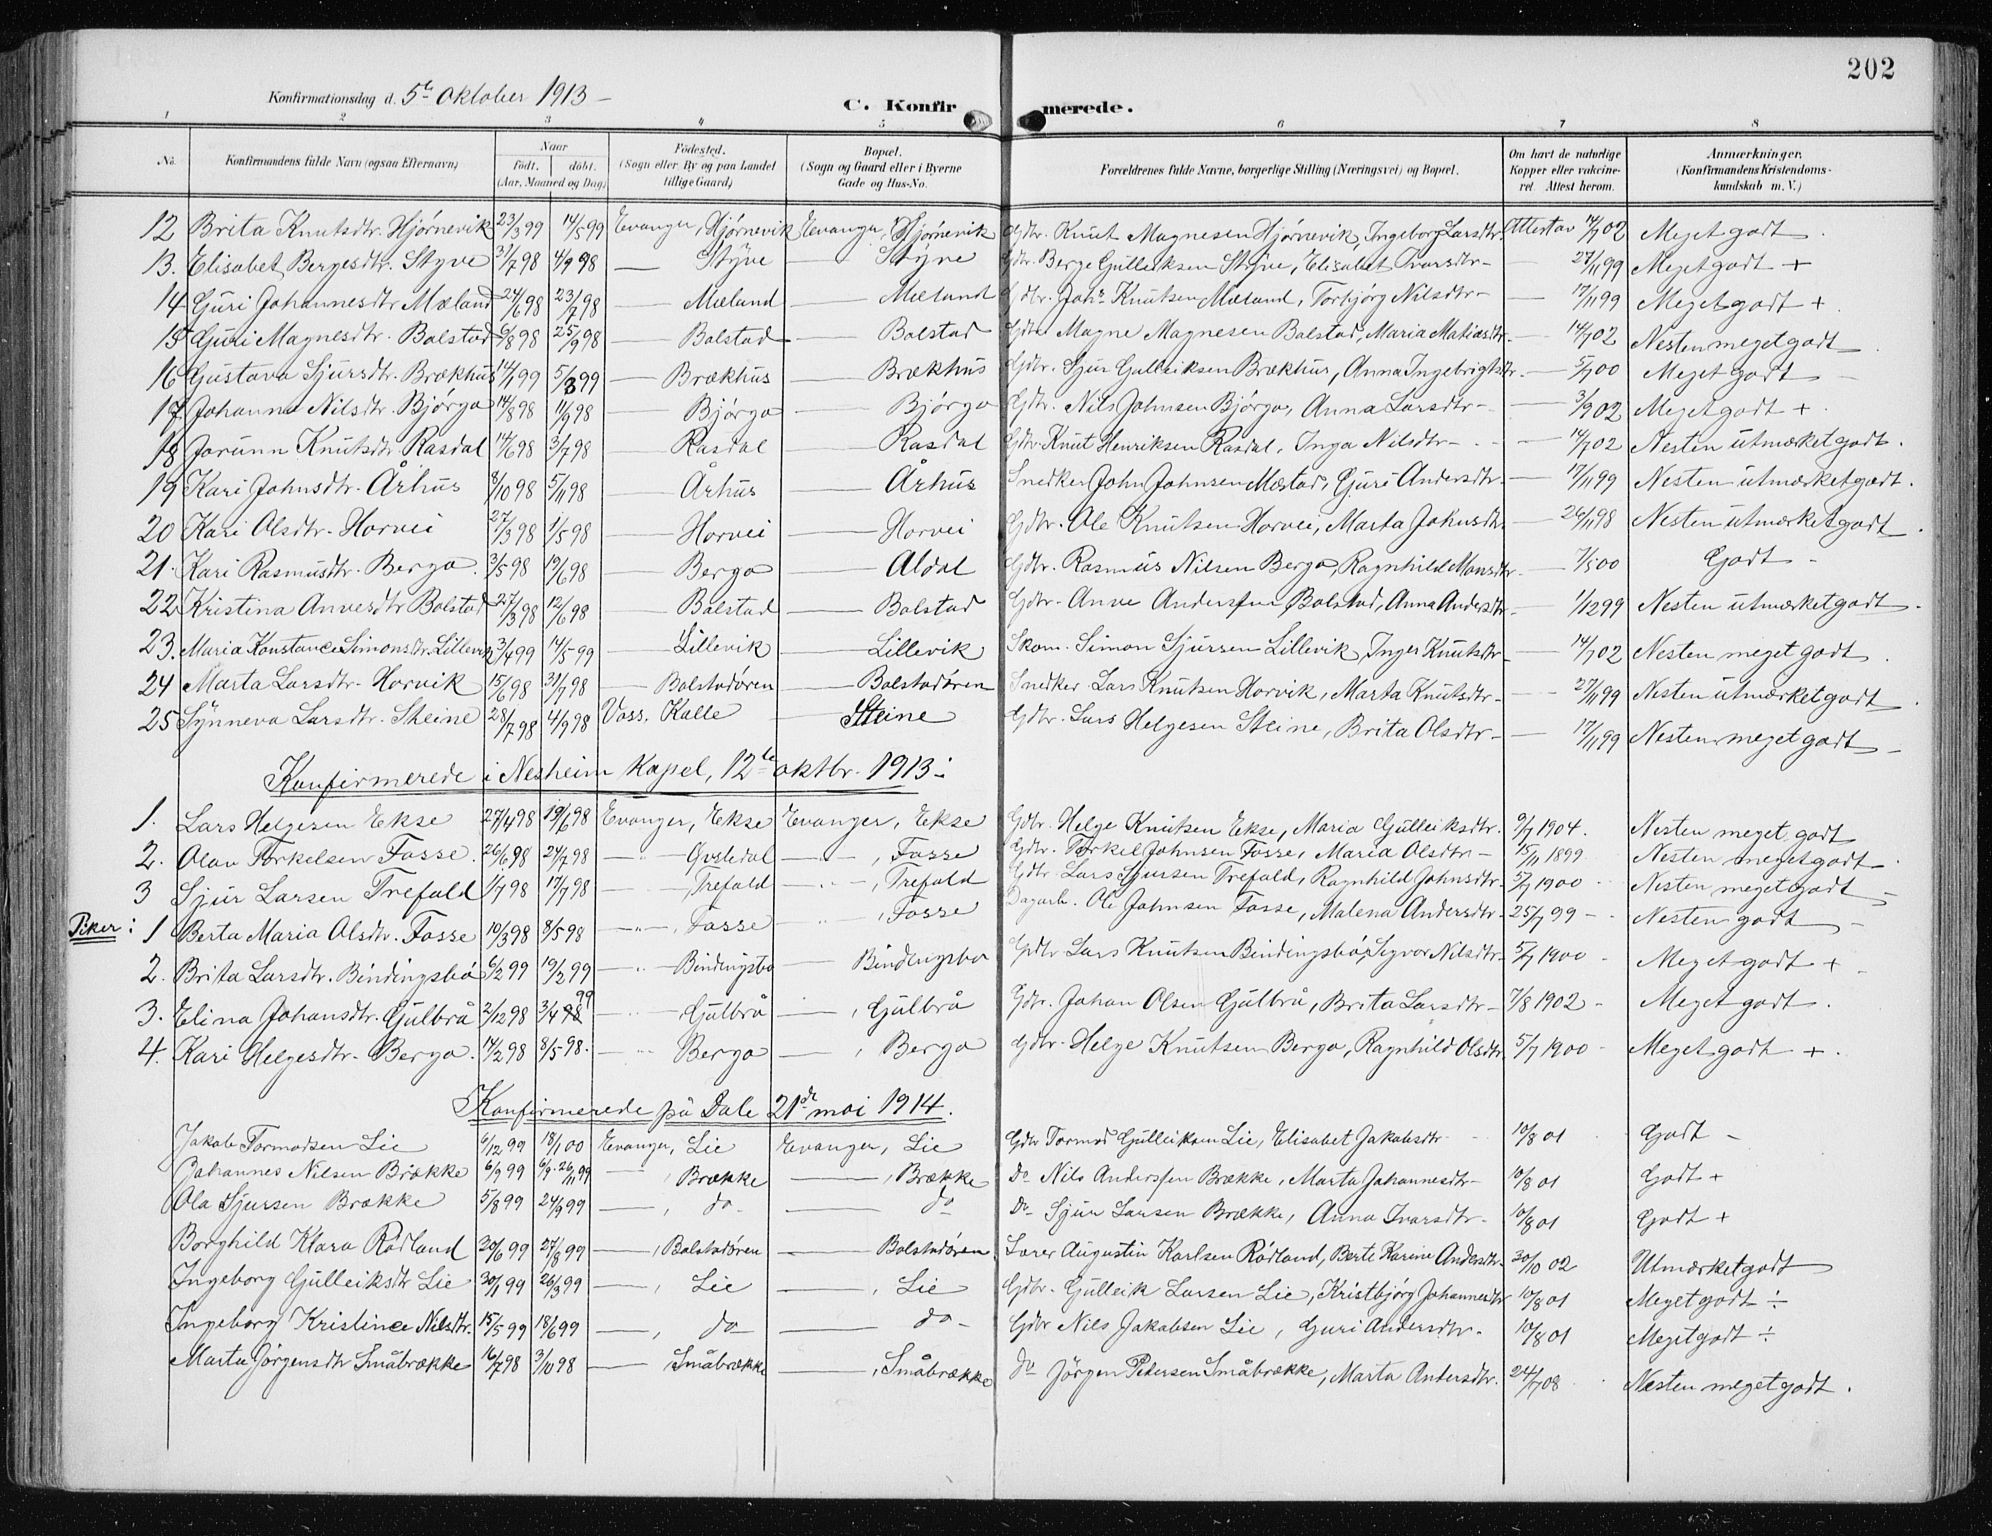 202
Konfirmationsdag d. 5te Oktober 1913 – C. Konfirmerede.
1 2 3 4 5 6 7 8
No. Konfirmandens fulde Navn (ogsaa Efternavn) Naar født. døbt. (Aar, Maaned og Dag) Fødested. (Sogn eller By og paa Landet tillige Gaard) Bopæl. (Sogn og Gaard eller i Byerne Gade og Hus-No. Forældrenes fulde Navne, borgerlige Stilling (Næringsvei) og Bopæl. Om havt de naturlige Kopper eller vakcineret. Attest herom. Anmærkninger. (Konfirmandens Kristendomskundskab m. V.)
12 Brita Knutsdtr. Hjørnevik 23/3 99 14/5 99 Evanger, Hjørnevik Evanger, Hjørnevik Gdbr. Knut Magnesen Hjørnevik, Ingeborg Larsdtr. Attest av 14/7 02 Meget godt.
13. Elisabet Bergesdtr. Styve 31/7 98 4/9 98 — Styve — Styve Gdbr. Berge Gulleiksen Styve, Elisabet Ivarsdtr – — 27/11 99 Meget godt +
14 Guri Johannesdtr Mæland 24/6 98 23/7 98 — Mæland — Mæland Gdbr. Johs Knutsen Mæland, Torbjørg Nilsdtr – — 17/11 99 Meget godt +
15 Guri Magnesdtr. Bolstad 6/8 98 25/9 98 — Bolstad — Bolstad Gdbr Magne Magnesen Bolstad, Maria Matiasdtr. — 14/7 02 Nesten meget godt.
16 Gustava Sjursdtr. Brækhus 14/1 99 5/3 99 — Brækhus — Brækhus Gdbr. Sjur Gulleiksen Brækhus, Anna Ingebrigtsdtr. — 5/7 00 Meget godt –
17 Johanna Nilsdtr. Bjørgo 14/8 98 11/9 98 — Bjørgo — Bjørgo Gdbr. Nils Johnsen Bjørgo, Anna Larsdtr – — 3/9 02 Meget godt +.
18 Jorunn Knutsdtr Rasdal 14/6 98 3/7 98 — Rasdal — Rasdal Gdbr. Knut Henriksen Rasdal, Inga Nilsdtr – — 14/7 02 Nesten utmærket godt.
19 Kari Johnsdtr. Århus 8/10 98 5/11 98 — Århus — Århus Snedker John Johnsen Mæstad, Guri Andersdtr. — 17/11 99 Nesten utmærket godt.
20 Kari Olsdtr. Horvei 27/3 98 1/5 98 — Horvei — Horvei Gdbr. Ole Knutsen Horvei, Marta Johnsdtr. — 26/11 98 Nesten utmærket godt.
21. Kari Rasmusdtr. Bergo. 3/5 98 19/6 98 — Bergo — Aldal Gdbr. Rasmus Nilsen Bergo, Ragnhild Monsdtr — 7/5 00 Godt –
22 Kristina Anvesdtr Bolstad 27/3 98 12/6 98 — Bolstad — Bolstad Gdbr. Anve Andersen Bolstad, Anna Andersdtr – — 1/12 99 Nesten utmærket godt.
23. Maria Konstance Simonsdtr. Lillevik 3/4 99 14/5 99 — Lillevik — Lillevik Skom. Simon Sjursen Lillevik, Inger Knutsdtr. — 14/7 02 Nesten meget godt.
24 Marta Larsdtr. Horvik 15/6 98 31/7 98 — Bolstadøren — Bolstadøren Snedker Lars Knutsen Horvik, Marta Knutsdtr – — 27/11 99 Nesten utmærket godt.
25 Synneva Larsdtr. Steine 28/7 98 4/9 98 Voss, Kalle — Steine Gdbr. Lars Helgesen Steine, Brita Olsdtr – — 17/11 99 Nesten meget godt –
Konfirmerede i Nesheim Kapel, 12te oktbr. 1913:
1. Lars Helgesen Ekse 27/4 98 19/6 98 Evanger, Ekse Evanger, Ekse Gdbr. Helge Knutsen Ekse, Maria Gulleiksdtr. 9/7 1904. Nesten meget godt
2. Olav Torkelsen Fosse. 26/6 98 24/7 98 —"— —"—, Fosse Gdbr. Torkel Johnsen Fosse, Maria Olsdtr – 15/11 1899 Nesten meget godt.
3 Sjur Larsen Trefald 1/7 98 17/7 98 —"—, Trefald —"—, Trefald Gdbr Lars Sjursen Trefald, Ragnhild Johnsdtr. 5/7 1900 Nesten meget godt –
Piker: 1 Berta Maria Olsdtr. Fosse 10/3 98 8/5 98 —"—, Fosse " , Fosse Dagarb. Ole Johnsen Fosse, Malena Andersdtr – 25/7 99 – Nesten godt –
2. Brita Larsdtr. Bindingsbø 6/2 99 19/2 99 —"— Bindingsbø — Bindingsbø Gdbr Lars Knutsen Bindingsbø, Sygvor Nilsdtr – 5/7 1900 Meget godt +
3. Elina Johansdtr. Gulbrå 2/12 98 3/4 98 99 — Gulbrå —, Gulbrå Gdbr. Johan Olsen Gulbrå, Brita Larsdtr – 7/8 1902 – Meget godt.
4. Kari Helgesdtr. Bergo. 17/2 98 8/5 98. — Bergo —, Bergo Gdbr. Helge Knutsen Bergo, Ragnhild Olsdtr. 5/7 1900 – Meget godt +.
Konfirmerede på Dale 21de mai 1914.
Jakob Tormodsen Lie 6/12 99 18/1 00 Evanger, Lie Evanger, Lie Gdbr Tormod Gulleiksen Lie, Elisabet Jakobsdtr 10/8 01 Godt –
Johannes Nilsen Brække 6/9 99 6/9 - 26/11 99 —, Brække —, Brække Do Nils Andersen Brække, Marta Johannesdtr – 10/8 01 Godt +
Ola Sjursen Brække 5/8 99 24/9 99 —, do – — do Do Sjur Larsen Brække, Anna Ivarsdtr – 10/8 01 Godt +
Borghild Klara Rødland 20/6 99 27/8 99 —, Bolstadøren — Bolstadøren Lærer Augustin Karlsen Rødland, Berte Karine Andersdtr – 30/10 02 Utmærket godt
Ingeborg Gulleiksdtr Lie 30/1 99 26/3 99 —, Lie —, Lie Gdbr. Gulleik Larsen Lie, Kristbjørg Johannesdtr 10/8 01 Meget godt ÷
Ingeborg Kristince Nilsdtr. 15/5 99 18/6 99 —, do — do – Gdbr Nils Jakobsen Lie, Guri Andersdtr – 10/8 01 Meget godt ÷
Marta Jørgensdtr Småbrække 16/7 98 3/10 98 — Småbrække , Småbrække do Jørgen Pedersen Småbrække, Marta Andersdtr. 24/7 08 Nesten meget godt.